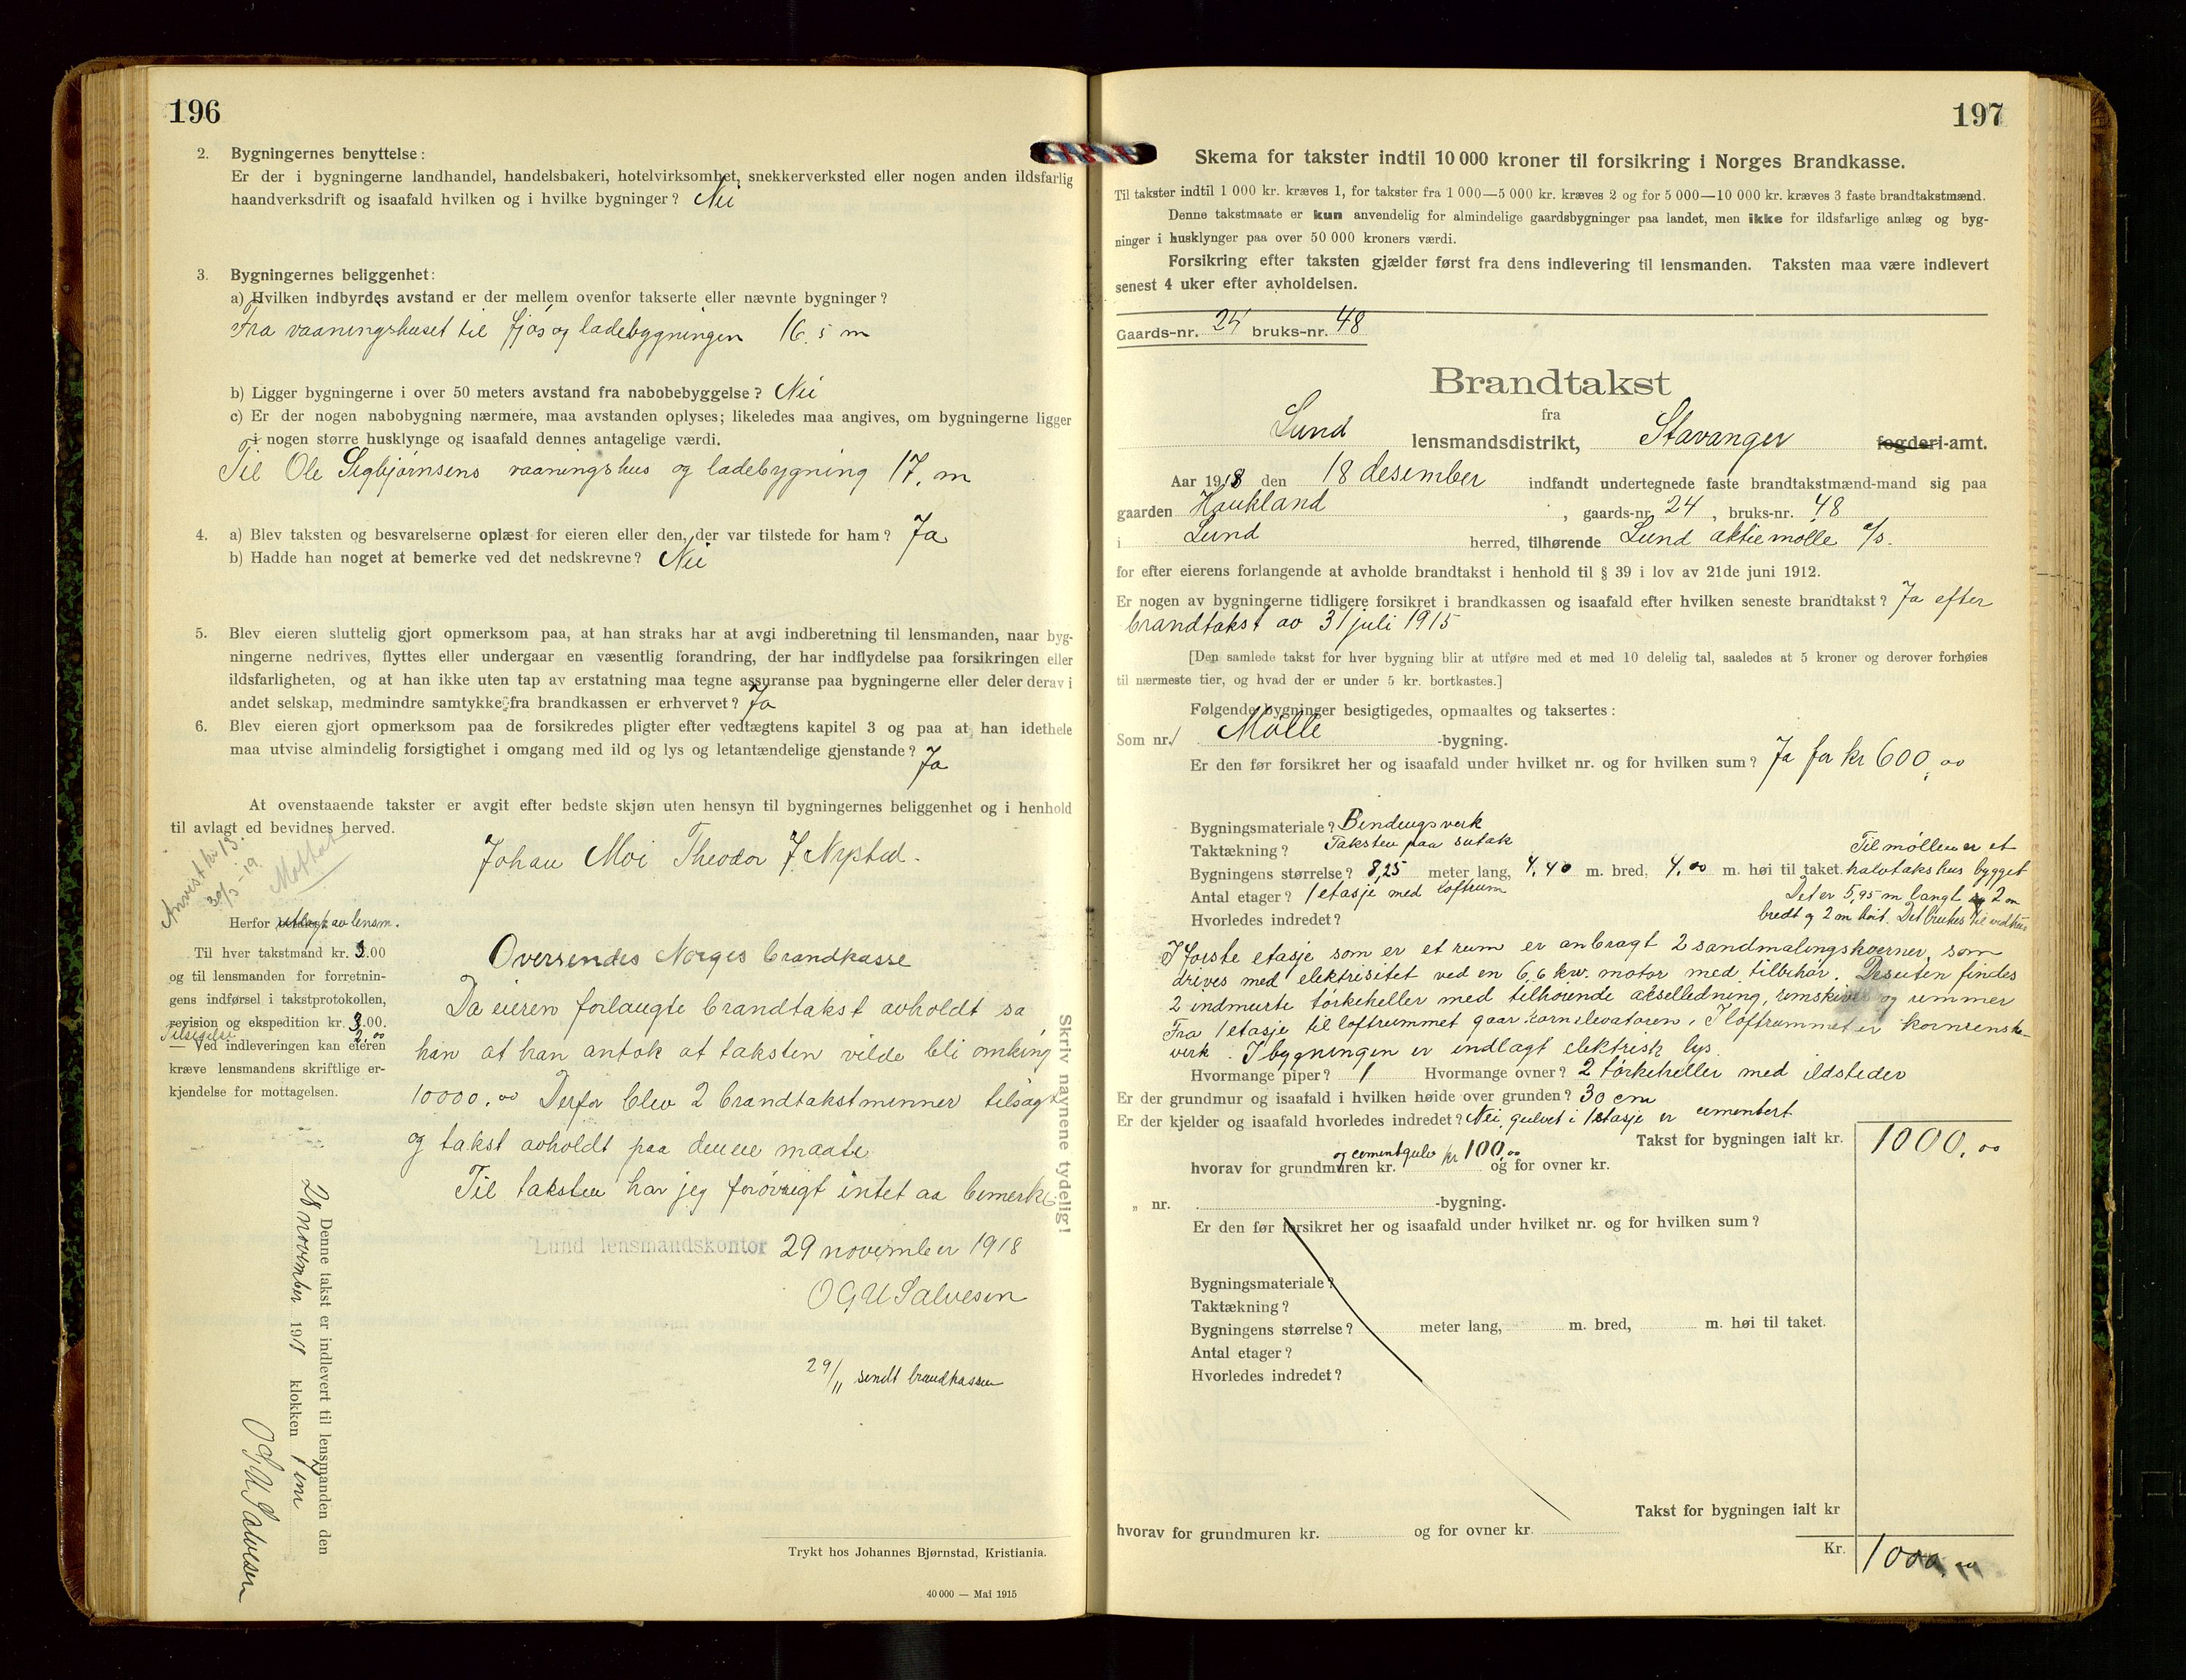 196
2. Bygningernes benyttelse:
Er der i bygningerne landhandel, handelsbakeri, hotelvirksomhet, snekkerverksted eller nogen anden ildsfarlig
haandverksdrift og isaafald hvilken og i hvilke bygninger? Nei
3. Bygningernes beliggenhet:
a) Hvilken indbyrdes avstand er der mellem ovenfor takserte eller nævnte bygninger?
Fra vaaningshuset til fjøs og ladebygningen 16.5 m
b) Ligger bygningerne i over 50 meters avstand fra nabobebyggelse? Nei
c) Er der nogen nabobygning nærmere, maa avstanden oplyses; likeledes maa angives, om bygningerne ligger
i nogen større husklynge og isaafald dennes antagelige værdi.
Til Ole Sigbjørnsens vaaningshus og ladebygning 17. m
4. a) Blev taksten og besvarelserne oplæst for eieren eller den, der var tilstede for ham? Ja
b) Hadde han noget at bemerke ved det nedskrevne? Nei
5. Blev eieren sluttelig gjort opmerksom paa, at han straks har at avgi indberetning til lensmanden, naar byg-
ningerne nedrives, flyttes eller undergaar en væsentlig forandring, der har indflydelse paa forsikringen eller
ildsfarligheten, og at han ikke uten tap av erstatning maa tegne assuranse paa bygningerne eller deler derav i
andet selskap, medmindre samtykke fra brandkassen er erhvervet? Ja
6. Blev eieren gjort opmerksom paa de forsikredes pligter efter vedtægtens kapitel 3 og paa at han idethele
maa utvise almindelig forsigtighet i omgang med ild og lys og letantændelige gjenstande? Ja
At ovenstaaende takster er avgit efter bedste skjøn uten hensyn til bygningernes beliggenhet og i henhold
til avlagt ed bevidnes herved.
Johan Moi Theodor J. Nysted.
Anvist kr 13.
30/3-19
Mottat
Herfor av lensm.
Til hver takstmand kr. 3.00
og til lensmanden for forretnin-
gens indførsel i takstprotokollen,
revision og ekspedition kr. 3.00.
Tilsigelse 2,00
Ved indleveringen kan eieren
kræve lensmandens skriftlige er-
kjendelse for mottagelsen.
Oversendes Norges brandkasse
Da eieren forlangte brandtakst avholdt sa
han at han antok at taksten vilde bli omking
10000,00 Derfor blev 2 brandtakstmenner tilsagt
og takst avholdt paa denne maate
Til taksten har jeg forøvrigt intet aa bemerke
Lund lensmandskontor 29 november 1918
O G U Salvesen
29/11 sendt brandkassen
Skriv navnene tydelig!
Denne takst er indlevert til lensmanden den
28 november 1918 klokken 1 em
O G U Salvesen
Trykt hos Johannes Bjørnstad, Kristiania.
40 000 — Mai 1915
197
Skema for takster indtil 10 000 kroner til forsikring i Norges Brandkasse.
Til takster indtil 1 000 kr. kræves 1, for takster fra 1 000—5 000 kr. kræves 2 og for 5 000—10 000 kr. kræves 3 faste brandtakstmænd.
Denne takstmaate er kun anvendelig for almindelige gaardsbygninger paa landet, men ikke for ildsfarlige anlæg og byg-
ninger i husklynger paa over 50 000 kroners værdi.
Forsikring efter taksten gjælder først fra dens indlevering til lensmanden. Taksten maa være indlevert
senest 4 uker efter avholdelsen.
Gaards-nr. 24 bruks-nr. 48
Brandtakst
fra
Lund lensmandsdistrikt, Stavanger fogderi-amt.
Aar 1918 den 18 desember indfandt undertegnede faste brandtakstmænd-mand sig paa
gaarden Haukland, gaards-nr. 24, bruks-nr. 48
i Lund herred, tilhørende Lund aktiemølle a/s.
for efter eierens forlangende at avholde brandtakst i henhold til § 39 i lov av 21de juni 1912.
Er nogen av bygningerne tidligere forsikret i brandkassen og isaafald efter hvilken seneste brandtakst? Ja efter
brandtakst av 31 juli 1915
[Den samlede takst for hver bygning blir at utføre med et med 10 delelig tal, saaledes at 5 kroner og derover forhøies
til nærmeste tier, og hvad der er under 5 kr. bortkastes.]
Følgende bygninger besigtigedes, opmaaltes og taksertes:
Som nr. 1 Mølle -bygning.
Er den før forsikret her og isaafald under hvilket nr. og for hvilken sum? Ja for kr 600,00
Bygningsmateriale? Bindingsverk
Taktækning? Taksten paa sutak
Bygningens størrelse? 8,25 meter lang, 4,40 m. bred, 4,00 m. høi til taket.
Til møllen er et
halvtakshus bygget
Antal etager? 1 etasje med loftrum
Det er 5,95 m langt 2 m
Hvorledes indredet?
bredt og 2 m høit. Det brukes til vedhus
I første etasje som er et rum er anbragt 2 sandmalingskverner, som
drives med elektrisitet ved en 6,6 kw. motor med tilbehør. Desuten findes
2 indmurte tørkeheller med tilhørende akselledning, remskiver og remmer
Fra 1 etasje til loftrummet gaar kornelevatoren. I loftrummet er kornrenske-
verk. I bygningen er indlagt elektrisk lys.
Hvormange piper? 1 Hvormange ovner? 2 tørkeheller med ildsteder
Er der grundmur og isaafald i hvilken høide over grunden? 30 cm
Er der kjelder og isaafald hvorledes indredet? Nei, gulvet i 1 etasje er cementert
Takst for bygningen ialt kr. 1000,00
hvorav for grundmuren kr. og cementgulv kr 100,00 og for ovner kr.
„ nr. -bygning.
Er den før forsikret her og isaafald under hvilket nr. og for hvilken sum?
Bygningsmateriale?
Taktækning?
Bygningens størrelse? meter lang, m. bred, m. høi til taket.
Antal etager?
Hvorledes indredet?
Takst for bygningen ialt kr
hvorav for grundmuren kr. og for ovner kr.
Kr. 1000,00